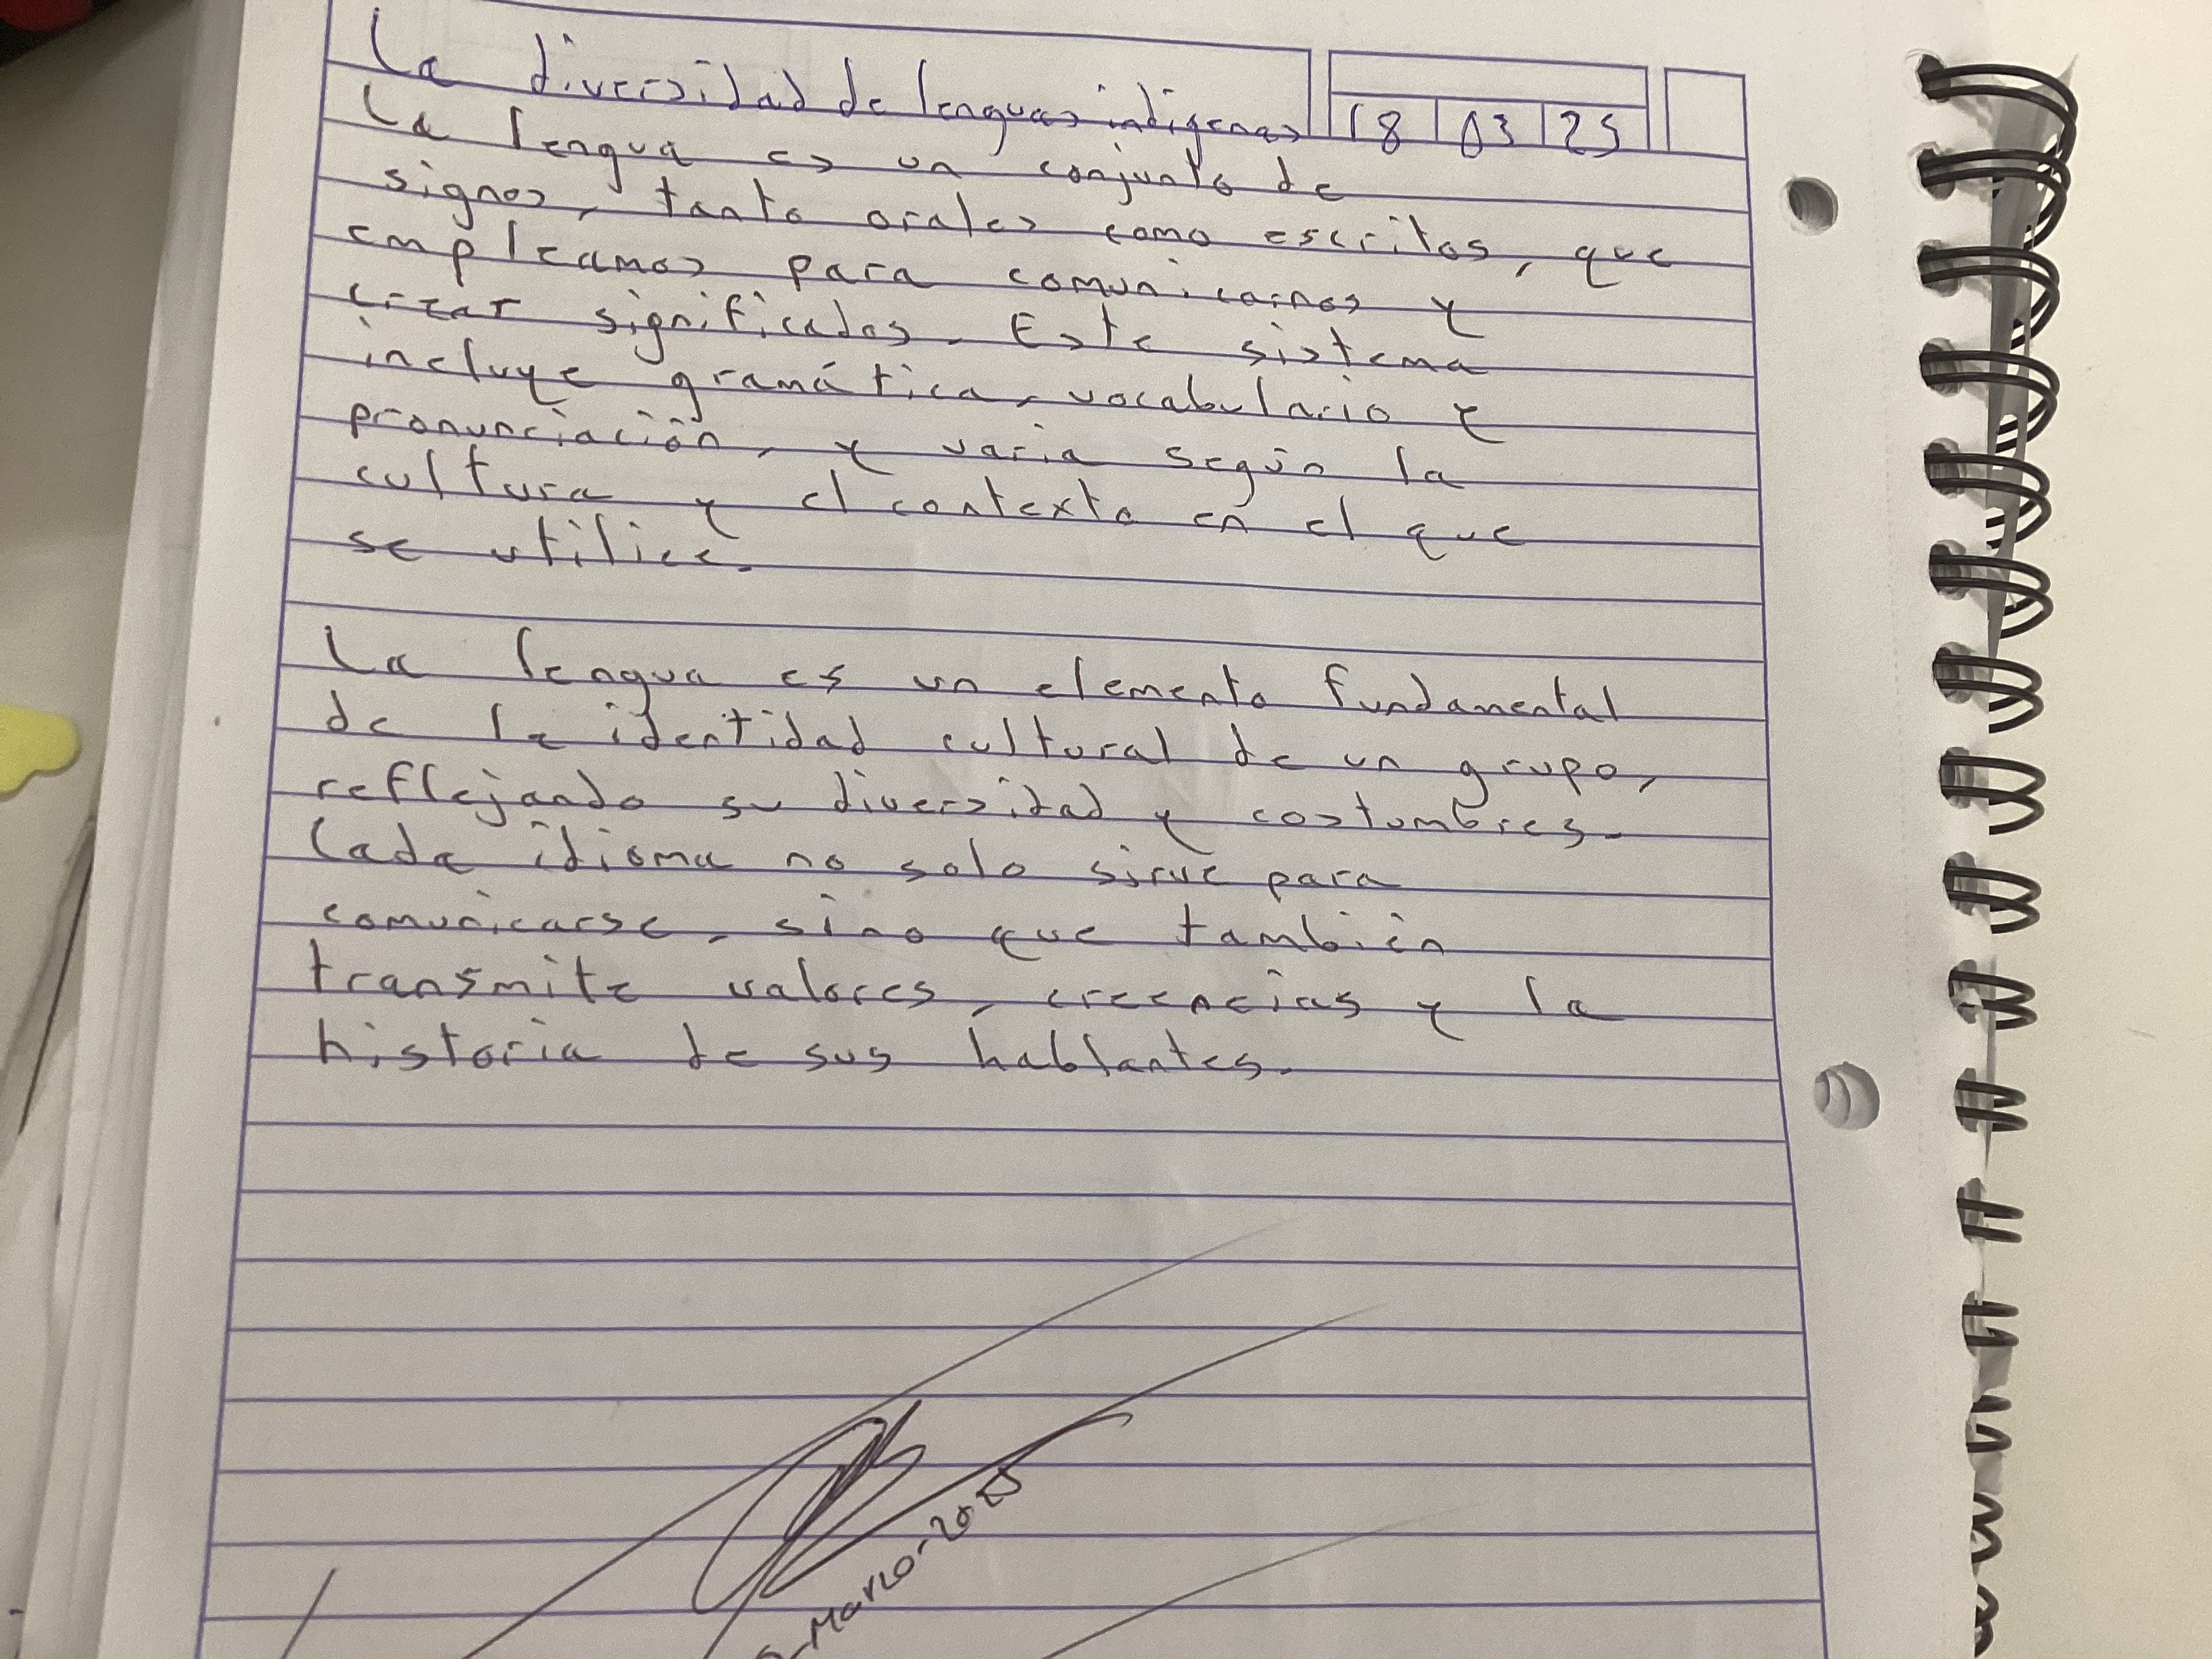 La diversidad de lenguas indigenas
18 03 25
La lengua es un conjunto de
signos, tanto orales como escritos, que
empleamos para comunicarnos y
crear significados. Este sistema
incluye gramática, vocabulario y
pronunciación, y varia según la
cultura y el contexto en el que
se utilice.
La lengua es un elemento fundamental
de la identidad cultural de un grupo,
reflejando su diversidad y costumbres.
Cada idioma no solo sirve para
comunicarse, sino que también
transmite valores, creencias y la
historia de sus hablantes.
-Marzo-2025